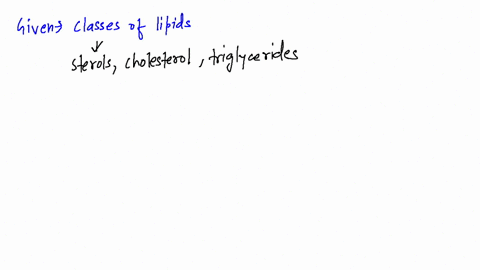 Given→ classes of lipids
sterols, cholesterol, triglycerides